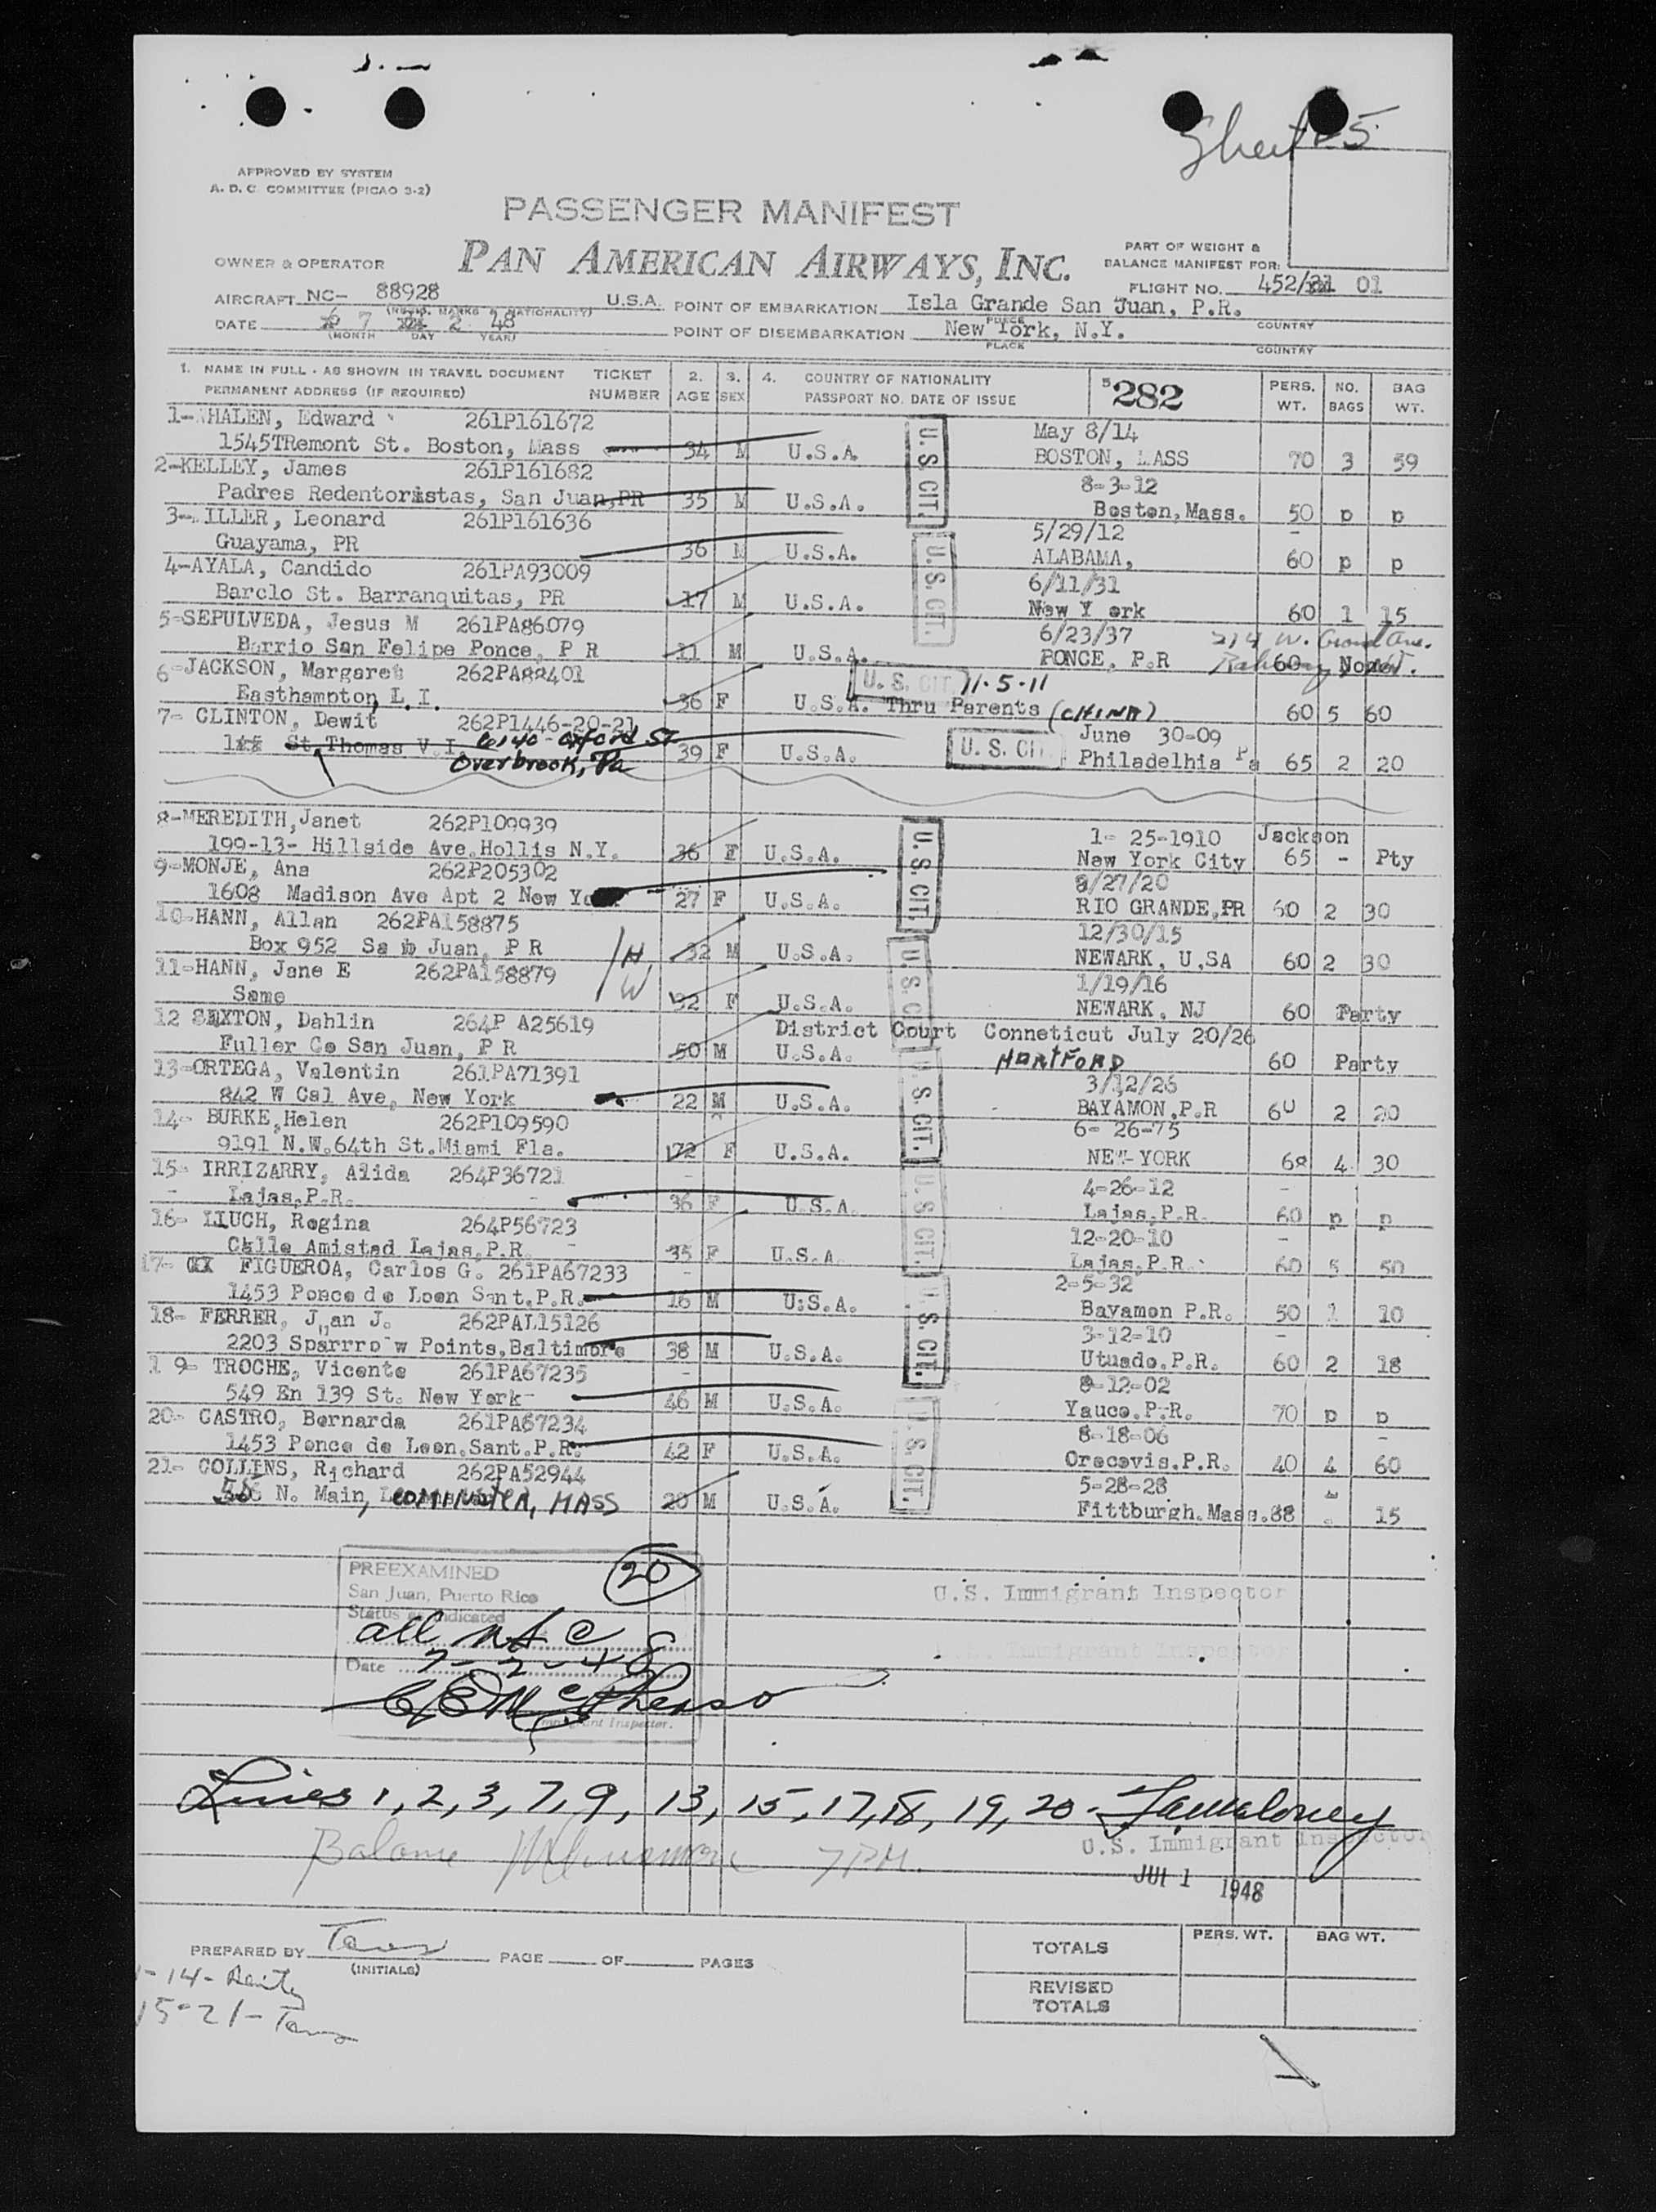 Sheet 5
APPROVED BY SYSTEM
A. D. C. COMMITTEE (PICAO 3-2)
PASSENGER MANIFEST
PAN AMERICAN AIRWAYS, INC.
PART OF WEIGHT &
BALANCE MANIFEST FOR:
OWNER & OPERATOR
FLIGHT NO. 452/ 01
AIRCRAFT NC- 88928 U.S.A. POINT OF EMBARKATION Isla Grande San Juan, P.R.
(REGIS. MARKS & NATIONALITY) PLACE COUNTRY
DATE 7 2 48 POINT OF DISEMBARKATION New York, N.Y.
(MONTH DAY YEAR) PLACE COUNTRY
1. NAME IN FULL - AS SHOWN IN TRAVEL DOCUMENT TICKET 2. 3. 4. COUNTRY OF NATIONALITY 5 282 PERS. NO. BAG
PERMANENT ADDRESS (IF REQUIRED) NUMBER AGE SEX PASSPORT NO. DATE OF ISSUE WT. BAGS WT.
1-WHALEN, Edward 261P161672 May 8/14
1545TRemont St. Boston, Mass 34 M U.S.A. U.S. CIT. BOSTON, MASS 70 3 59
2-KELLEY, James 261P161682 8-3-12
Padres Redentoristas, San Juan,PR 35 M U.S.A. Boston,Mass. 50 p p
3-MILLER, Leonard 261P161636 5/29/12
Guayama, PR 36 M U.S.A. U.S. CIT. ALABAMA, 60 p p
4-AYALA, Candido 261PA93009 6/11/31
Barclo St. Barranquitas, PR 17 M U.S.A. New Y ork 60 1 15
5-SEPULVEDA, Jesus M 261PA86079 6/23/37 274 W. Grand Ave.
Barrio San Felipe Ponce, P R 11 M U.S.A. PONCE, P.R 60
6-JACKSON, Margaret 262PA82401 U.S. CIT 11-5-11
Easthampton L.I. 36 F U.S.A. Thru Parents (CHINA) 60 5 60
7- CLINTON, Dewit 262P1446-20-21 June 30-09
St Thomas V.I. 6140 Oxford St 39 F U.S.A. U.S. CIT Philadelhia Pa 65 2 20
Overbrook, Pa
8-MEREDITH,Janet 262P109939 1- 25-1910 Jackson
199-13- Hillside Ave.Hollis N.Y. 36 F U.S.A. U.S. CIT. New York City 65 - Pty
9-MONJE, Ana 262P205302 8/27/20
1608 Madison Ave Apt 2 New Yo 27 F U.S.A. RIO GRANDE,PR 60 2 30
10-HANN, Allan 262PA158875 12/30/15
Box 952 Sa n Juan, P R H 32 M U.S.A. U.S. CIT. NEWARK, U.SA 60 2 30
11-HANN, Jane E 262PA158879 1/19/16
Same W 32 F U.S.A. NEWARK, NJ 60 Party
12 SEXTON, Dahlin 264P A25619 District Court Conneticut July 20/26
Fuller Co San Juan, P R 50 M U.S.A. HARTFORD 60 Party
13-ORTEGA, Valentin 261PA71391 3/12/26
842 W Cal Ave, New York 22 M U.S.A. U.S. CIT. BAYAMON,P.R 60 2 20
14- BURKE,Helen 262P109590 6- 26-75
9191 N.W.64th St.Miami Fla. 72 F U.S.A. NEW-YORK 68 4 30
15- IRRIZARRY, Alida 264P36721 4-26-12
Lajas,P.R. 36 F U.S.A. U.S. CIT. Lajas,P.R. 60 p p
16- LLUCH, Regina 264P56723 12-20-10
Calle Amistad Lajas,P.R. 35 F U.S.A. Lajas,P.R. 60 5 50
17- FIGUEROA, Carlos G. 261PA67233 2-5-32
1453 Ponce de Leon Sant.P.R. 16 M U.S.A. U.S. CIT. Bayamon P.R. 50 1 10
18- FERRER, Juan J. 262PA115126 3-12-10
2203 Sparrro w Points,Baltimore 38 M U.S.A. Utuado.P.R. 60 2 18
1 9- TROCHE, Vicente 261PA67235 8-12-02
549 En 139 St. New York- 46 M U.S.A. Yauco.P.R. 70 p p
20- CASTRO, Bernarda 261PA67234 8-18-06
1453 Ponce de Leon.Sant.P.R. 42 F U.S.A. U.S. CIT. Orocovis.P.R. 40 4 60
21- COLLINS, Richard 262PA52944 5-28-28
N. Main, LEOMINSTER, MASS 20 M U.S.A. Fittburgh.Mass. 15
PREEXAMINED 20
San Juan, Puerto Rico U.S. Immigrant Inspector
Status as indicated
all
Date 7-2-48 Immigrant Inspector
Immigrant Inspector.
Lines 1, 2, 3, 7, 9, 13, 15, 17, 18, 19, 20-
U.S. Immigrant Inspector
Balance 7PM.
JUL 1 1948
PREPARED BY PAGE OF PAGES
(INITIALS)
TOTALS PERS. WT. BAG WT.
REVISED
TOTALS
1-14-
15-21-